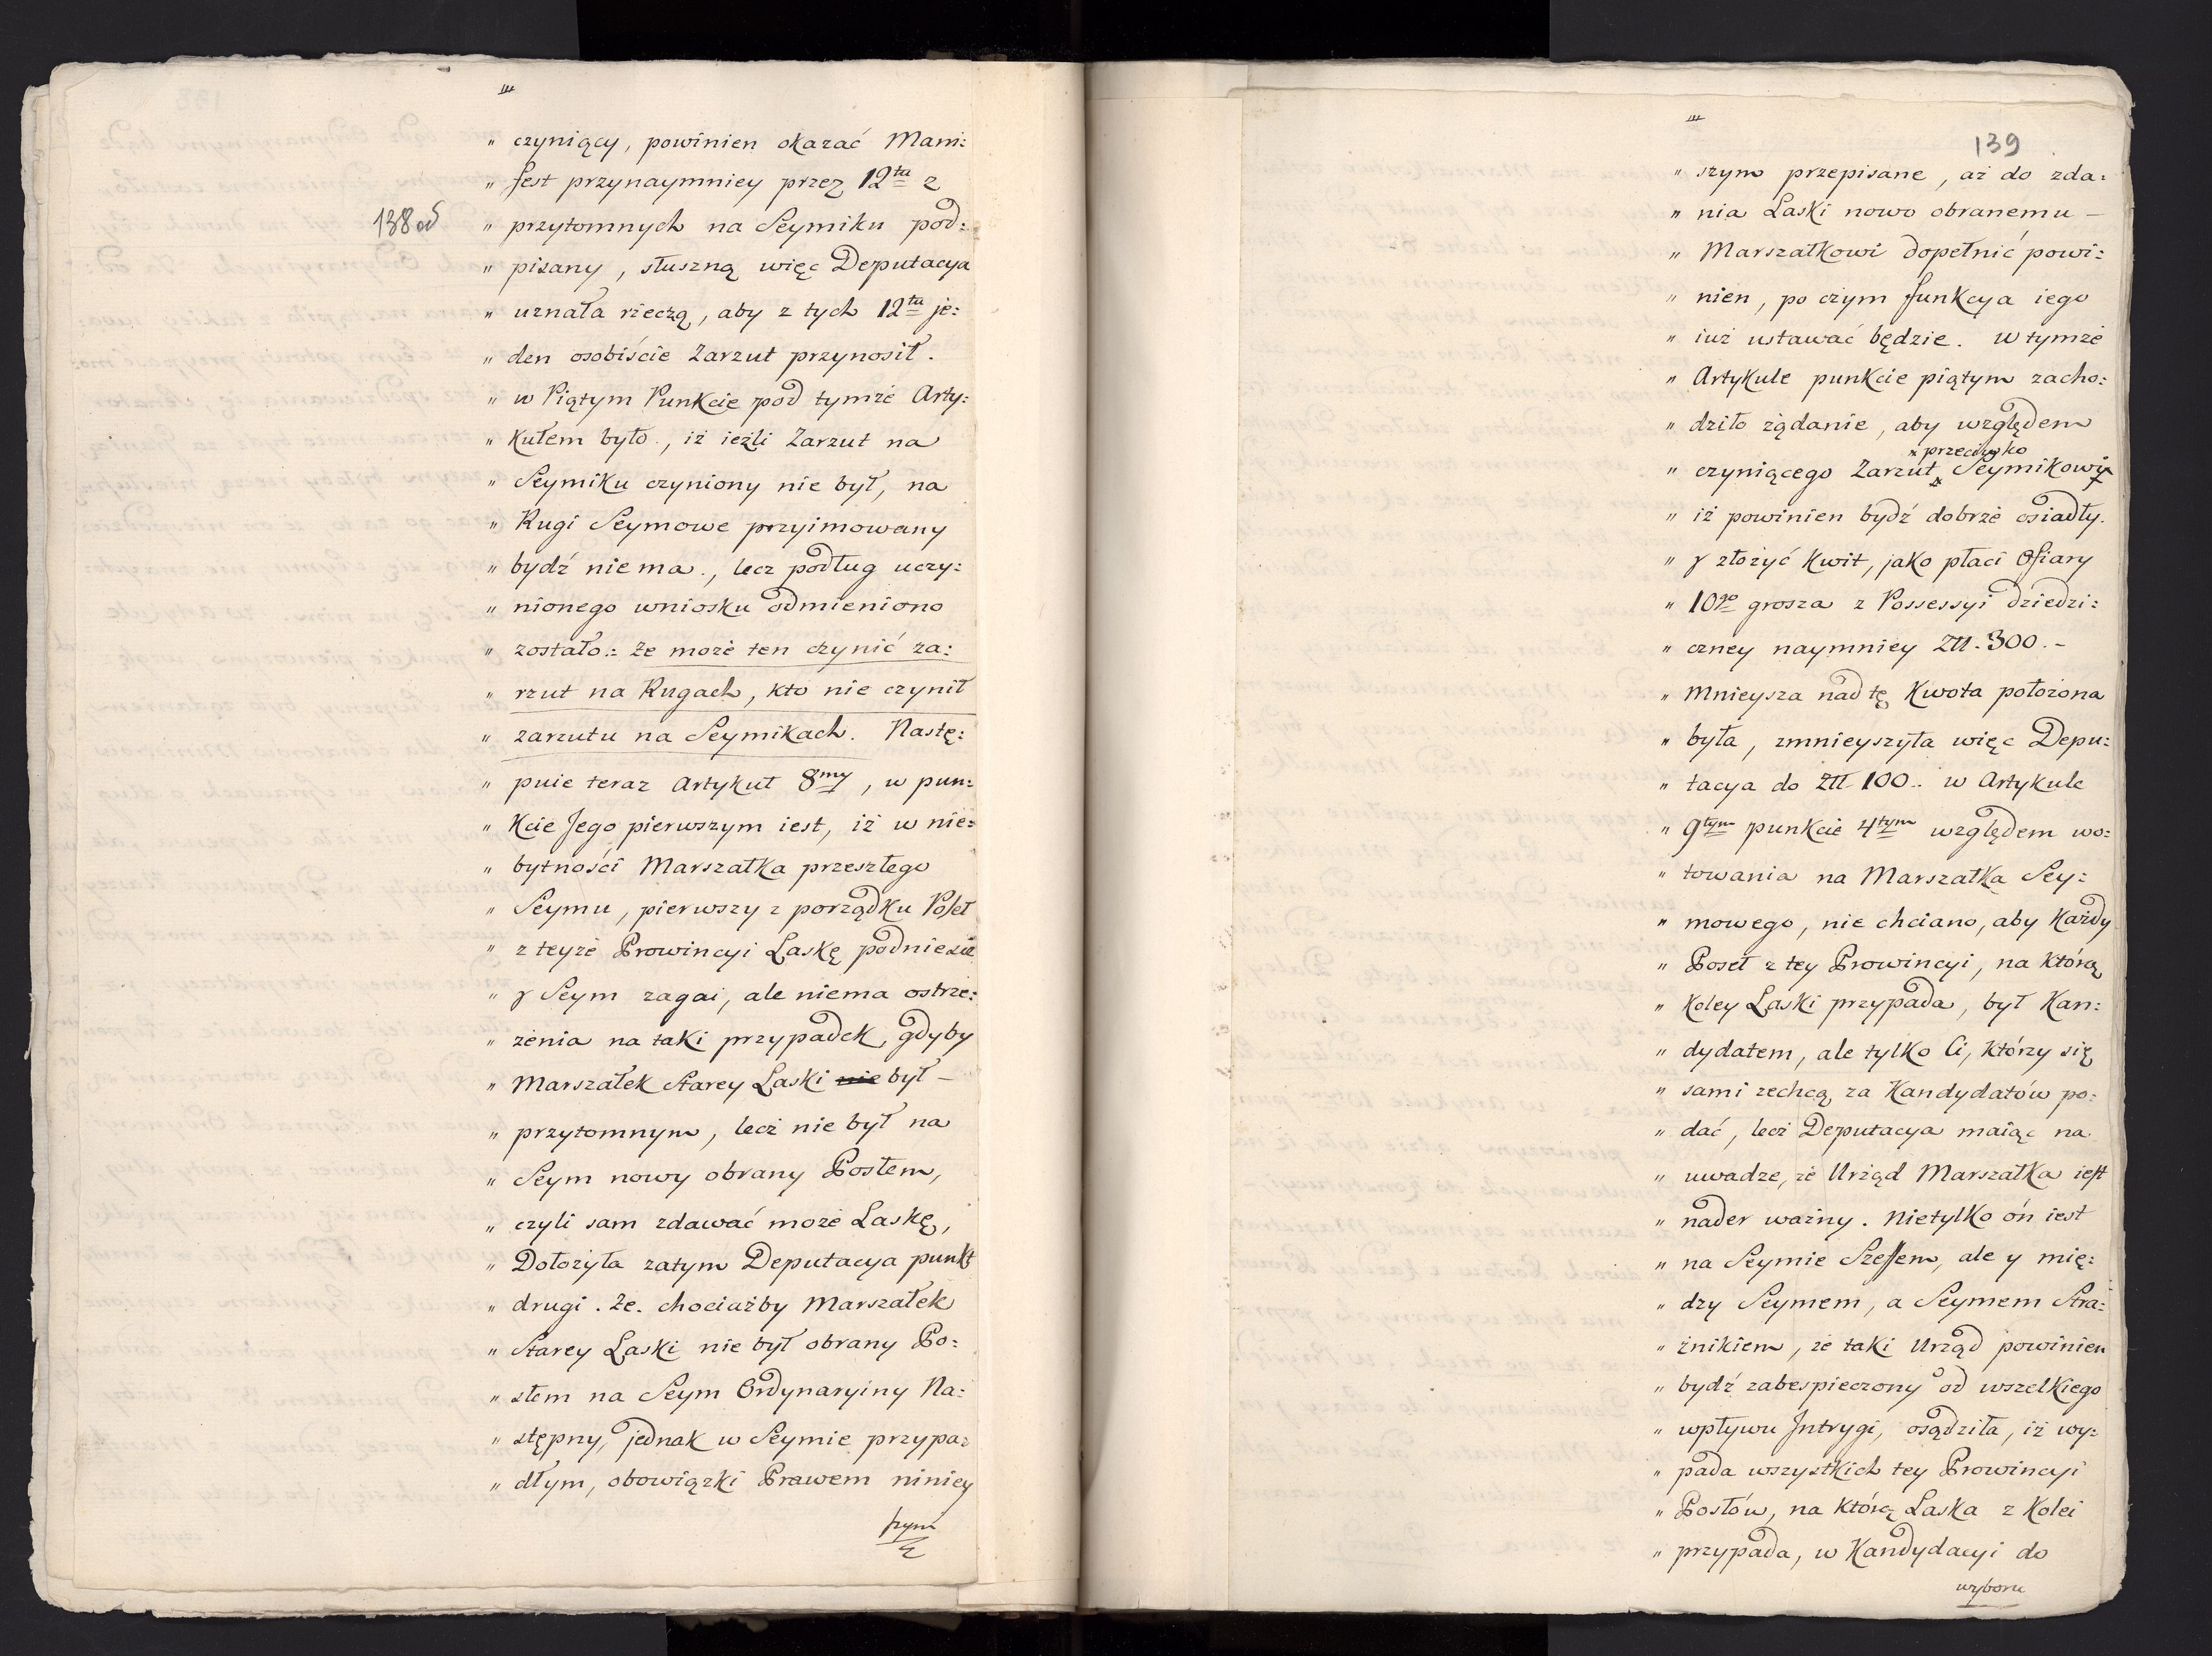 „ czyniący, powinien okazać Mani:
„ fest przynaymniey przez 12tu z
138 od „ przytomnych na Seymiku pod:
„ pisany, słuszną więc Deputacya
„ uznała rzeczą, aby z tych 12tu je:
„ den osobiście Zarzut przynosił.
„ w Piątym Punkcie pod tymże Arty:
„ kułem było., iż ieżli Zarzut na
„ Seymiku czyniony nie był, na
„ Rugi Seymowe przyimowany
„ bydź niema., lecz podług uczy:
„ nionego wniosku odmieniono
„ zostało.: Że może ten czynić za:
„ rzut na Rugach, kto nie czynił
„ zarzutu na Seymikach. Nastę:
„ puie teraz Artykuł 8my, w pun:
„ kcie Jego pierwszym iest, iż w nie:
„ bytności Marszałka przeszłego
„ Seymu, pierwszy z porządku Poseł
„ z teyże Prowincyi Laskę podniesie
„ y Seym zagai, ale niema ostrze:
„ żenia na taki przypadek, gdyby
„ Marszałek Starey Laski nie był –
„ przytomnym, lecz nie był na
„ Seym nowy obrany Posłem,
„ czyli sam zdawać może Laskę,
„ Dołożyła zatym Deputacya punkt
„ drugi. Że. chociażby Marszałek
„ Starey Laski nie był obrany Po:
„ słem na Seym Ordynaryiny Na:
„ stępny, jednak w Seymie przypa:
„ dłym, obowiązki Prawem niniey
szym
139
„ szym przepisane, aż do zda:
„ nia Laski nowo obranemu –
„ Marszałkowi dopełnić powi:
„ nien, po czym funkcya iego
„ iuż ustawać będzie. W tymże
„ Artykule punkcie piątym zacho:
„ dziło żądanie, aby względem
x przeciwko
„ czyniącego Zarzut x Seymikowi
„ iż powinien bydź dobrze osiadły.
„ y złożyć Kwit, jako płaci Ofiary
„ 10go grosza z Possessyi dziedzi:
„ czney naymniey Złł. 300. –
„ Mnieysza nad tę Kwota położona
„ była, zmnieyszyła więc Depu:
„ tacya do Złł 100.. w Artykule
„ 9tym punkcie 4tym względem wo:
„ towania na Marszałka Sey:
„ mowego, nie chciano, aby Każdy
„ Poseł z tey Prowincyi, na którą
„ Koley Laski przypada, był Kan:
„ dydatem, ale tylko Ci, którzy się
„ sami zechcą za Kandydatów po:
„ dać, lecz Deputacya maiąc na
„ uwadze, że Urząd Marszałka iest
„ nader ważny. Nietylko ón iest
„ na Seymie Szeffem, ale y mię:
„ dzy Seymem, a Seymem Stra:
„ żnikiem, że taki Urząd powinien
„ bydź zabespieczony od wszelkiego
„ wpływu Jntrygi, osądziła, iż wy:
„ pada wszystkich tey Prowincyi
„ Posłów, na którą Laska z Kolei
„ przypada, w Kandydacyi do
wyboru